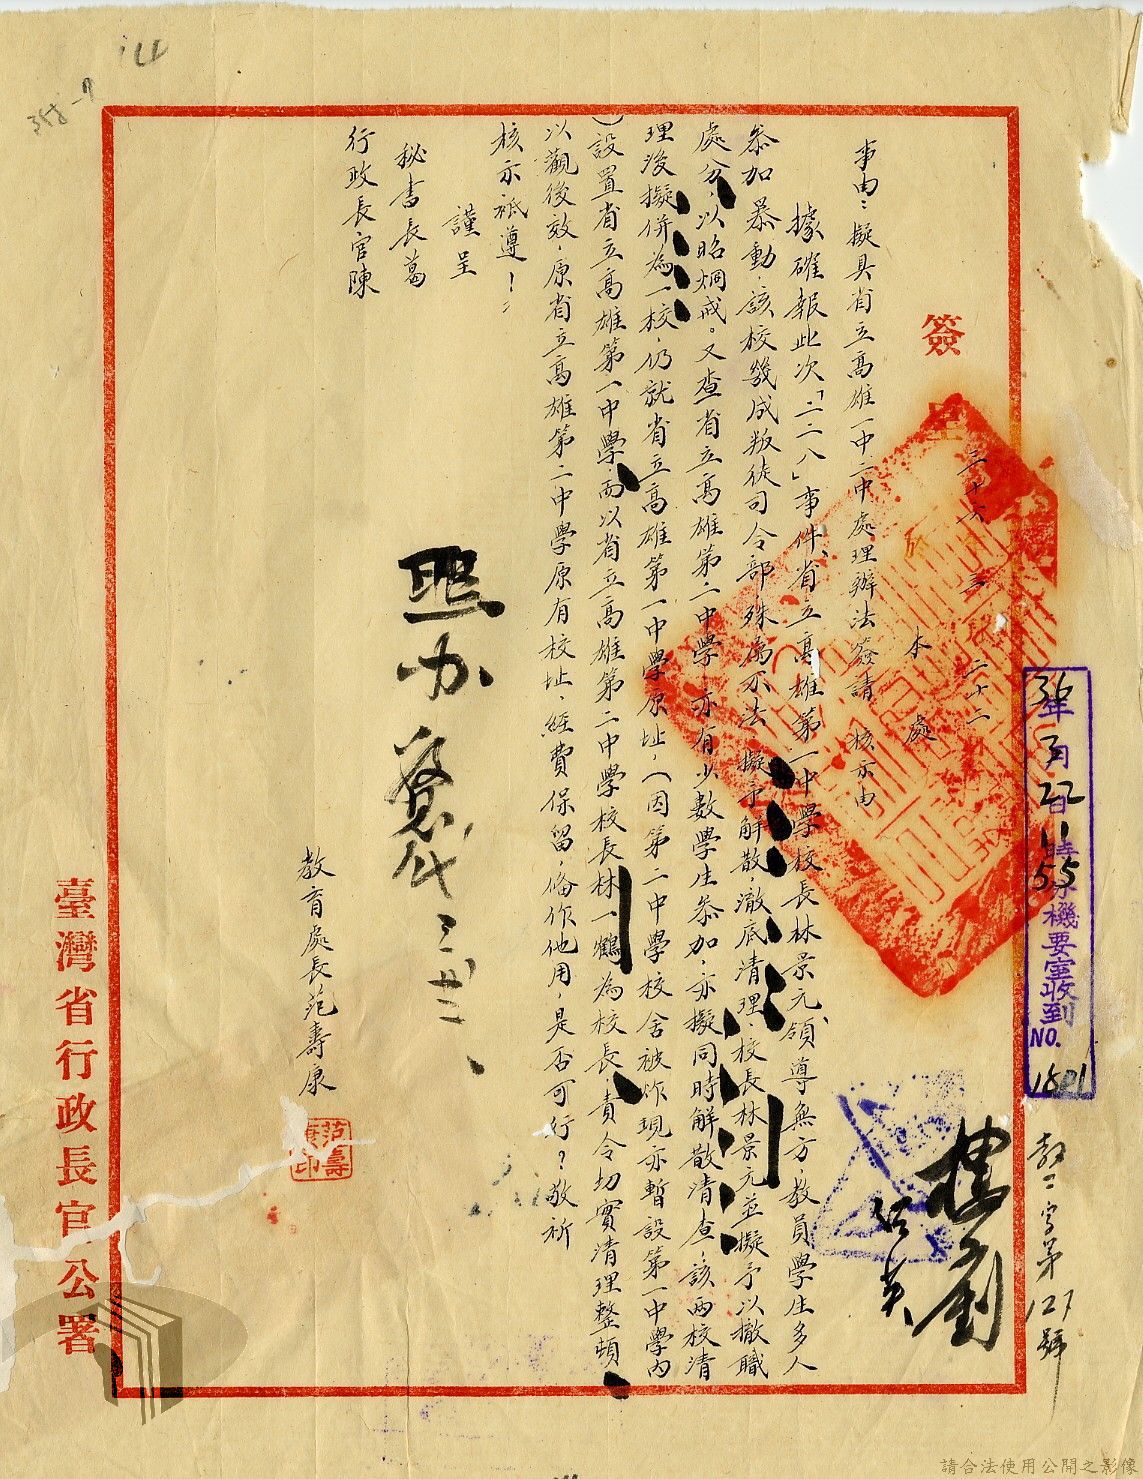 簽呈
三十六 三 二十二
於 本處
事由:擬具省立高雄一中二中處理辦法簽請 核示由
據確報此次「二二八」事件,省立高雄第一中學校長林景元領導無方,教員學生多人
參加暴動,該校幾成叛徒司令部,殊為不法,擬予解散,澈底清理,校長林景元並擬予以撤職
處分,以昭烱戒。又查省立高雄第二中學,亦有少數學生參加,亦擬同時解散清查,該兩校清
理後擬併為一校,仍就省立高雄第一中學原址,(因第二中學校舍被炸現亦暫設第一中學內
)設置省立高雄第一中學,而以省立高雄第二中學校長林一鶴為校長,責令切實清理整頓,
以觀後效,原省立高雄第二中學原有校址,經費保留,俻作他用,是否可行?敬祈
核示祗遵!
謹呈
秘書長葛
行政長官陳
教育處長范壽康
范壽康印
照办
代
三 廿二
臺灣省行政長官公署
36年3月22日11時55分機要室收到
NO. 1801
教二字第127號
請合法使用公開之影像